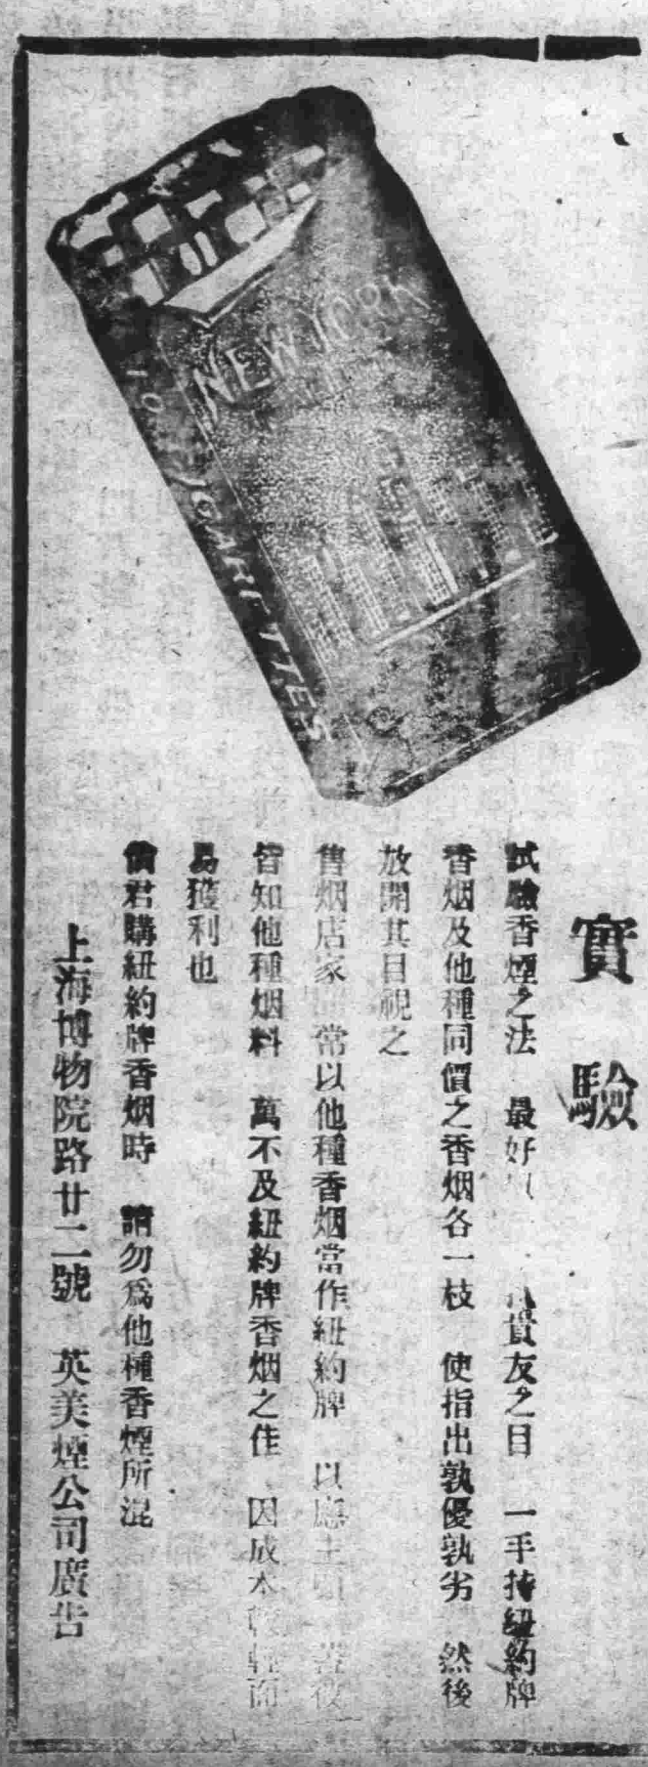 NEW YORK
CIGARETTES
實驗
試驗香煙之法 最好 貴友之目 一手持紐約牌
香烟及他種同價之香烟各一枝 使指出孰優孰劣 然後
放開其目視之
售烟店家 常以他種香烟當作紐約牌 以應主顧 蓋彼
皆知他種烟料 萬不及紐約牌香烟之佳 因成本 輕而
易獲利也
倘君購紐約牌香烟時 請勿爲他種香煙所混
上海博物院路廿二號 英美煙公司廣告